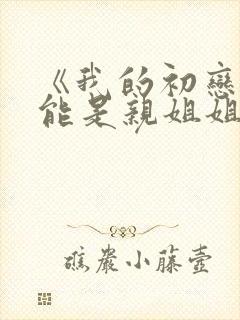 《我的初戀
能是親姐姐
礁巖小藤壺